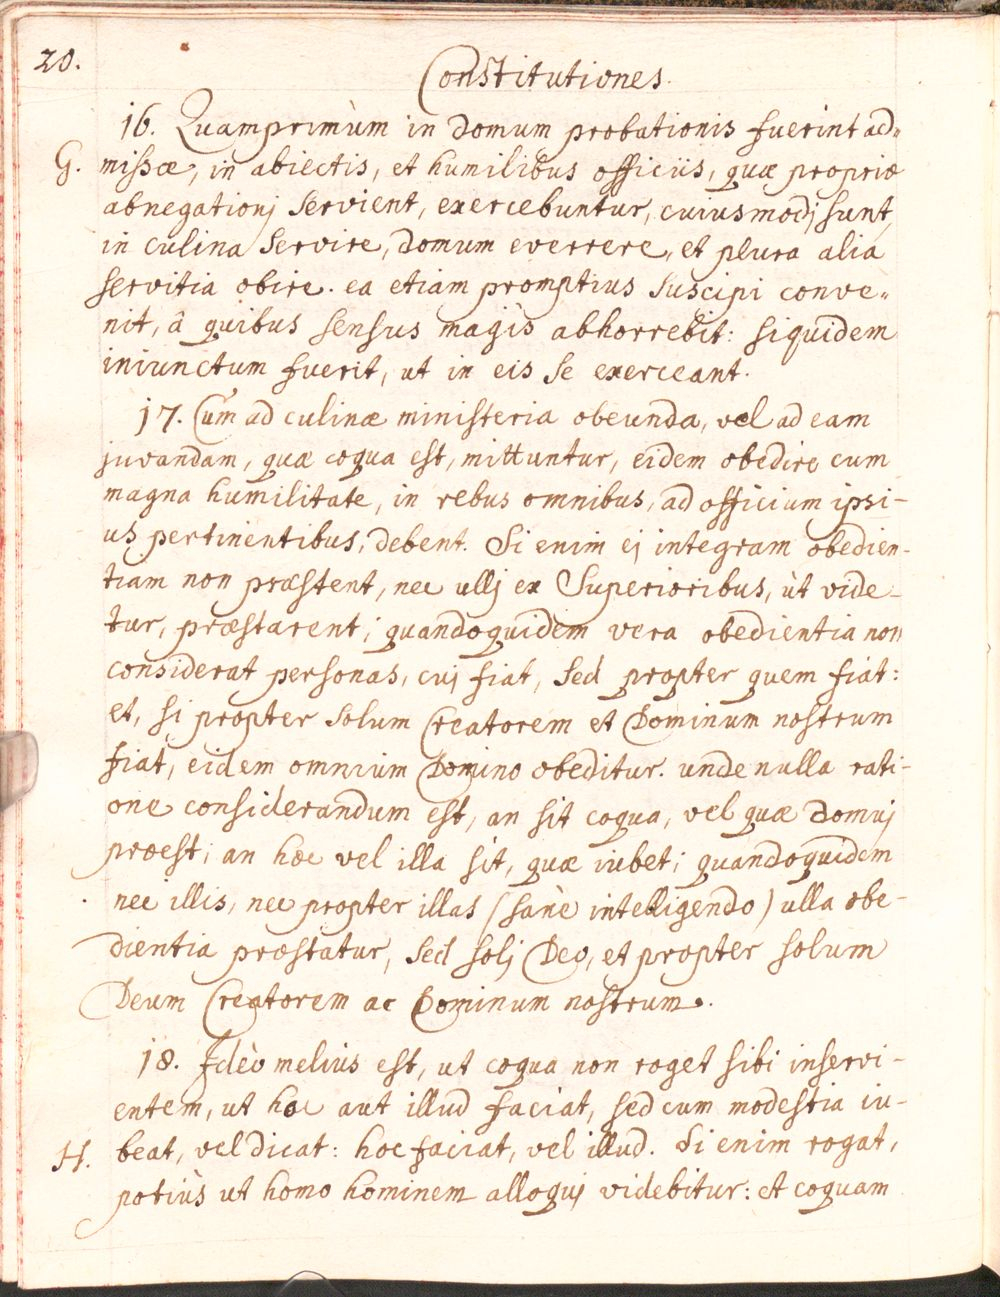 20.
Constitutiones.
16. Quamprimùm in domum probationis fuerint ad„
G. missæ, in abiectis, et humilibus officiis, quæ propriæ
abnegationj servient, exercebuntur, cuiusmodj sunt,
in culina servire, domum everrere, et plura alia
servitia obire. ea etiam promptius suscipi conve„
nit, â quibus sensus magìs abhorrebit: siquidem
iniunctum fuerit, ut in eis se exerceant.
17. Cùm ad culinæ ministeria obeunda, vel ad eam
juvandam, quæ coqua est, mittuntur, eidem obedire cum
magna humilitate, in rebus omnibus, ad officium ipsi-
us pertinentibus, debent. Si enim ej integram obedien-
tiam non præstent, nec ullj ex Superioribus, ùt vide-
tur, præstarent; quandoquidem vera obedientia non
considerat personas, cuj fiat, sed propter quem fiat:
et, si propter solum Creatorem et Dominum nostrum
fiat, eidem omnium Domino obeditur. unde nulla rati-
one considerandum est, an sit coqua, vel quæ domuj
præest; an hæc vel illa sit, quæ iubet; quandoquidem
nec illis, nec propter illas (sanè intelligendo) ulla obe-
dientia præstatur, sed solj Deo, et propter solum
Deum Creatorem ac Dominum nostrum.
18. Ideò melius est, ut coqua non roget sibi inservi-
entem, ut hoc aut illud faciat, sed cum modestia iu-
H. beat, vel dicat: hoc faciat, vel illud. Si enim rogat,
potiùs ut homo hominem alloquj videbitur: et coquam